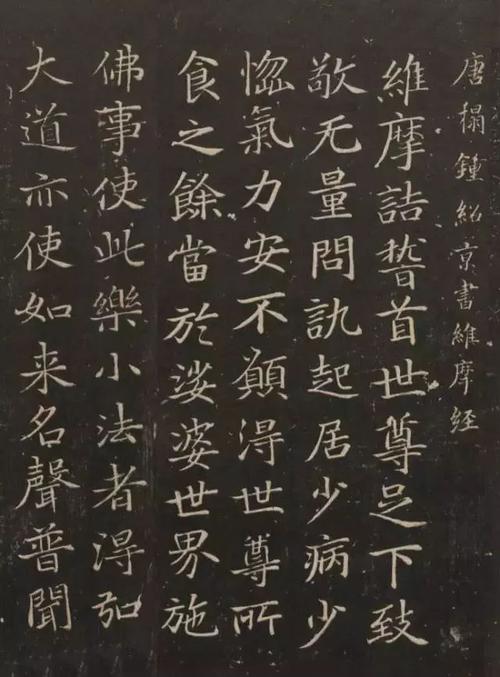 唐榻鍾紹京書維摩经
維摩詰稽首世尊足下致
敬无量問訊起居少病少
惱氣力安不願得世尊所
食之餘當於娑婆世界施
佛事使此樂小法者得弘
大道亦使如来名聲普聞